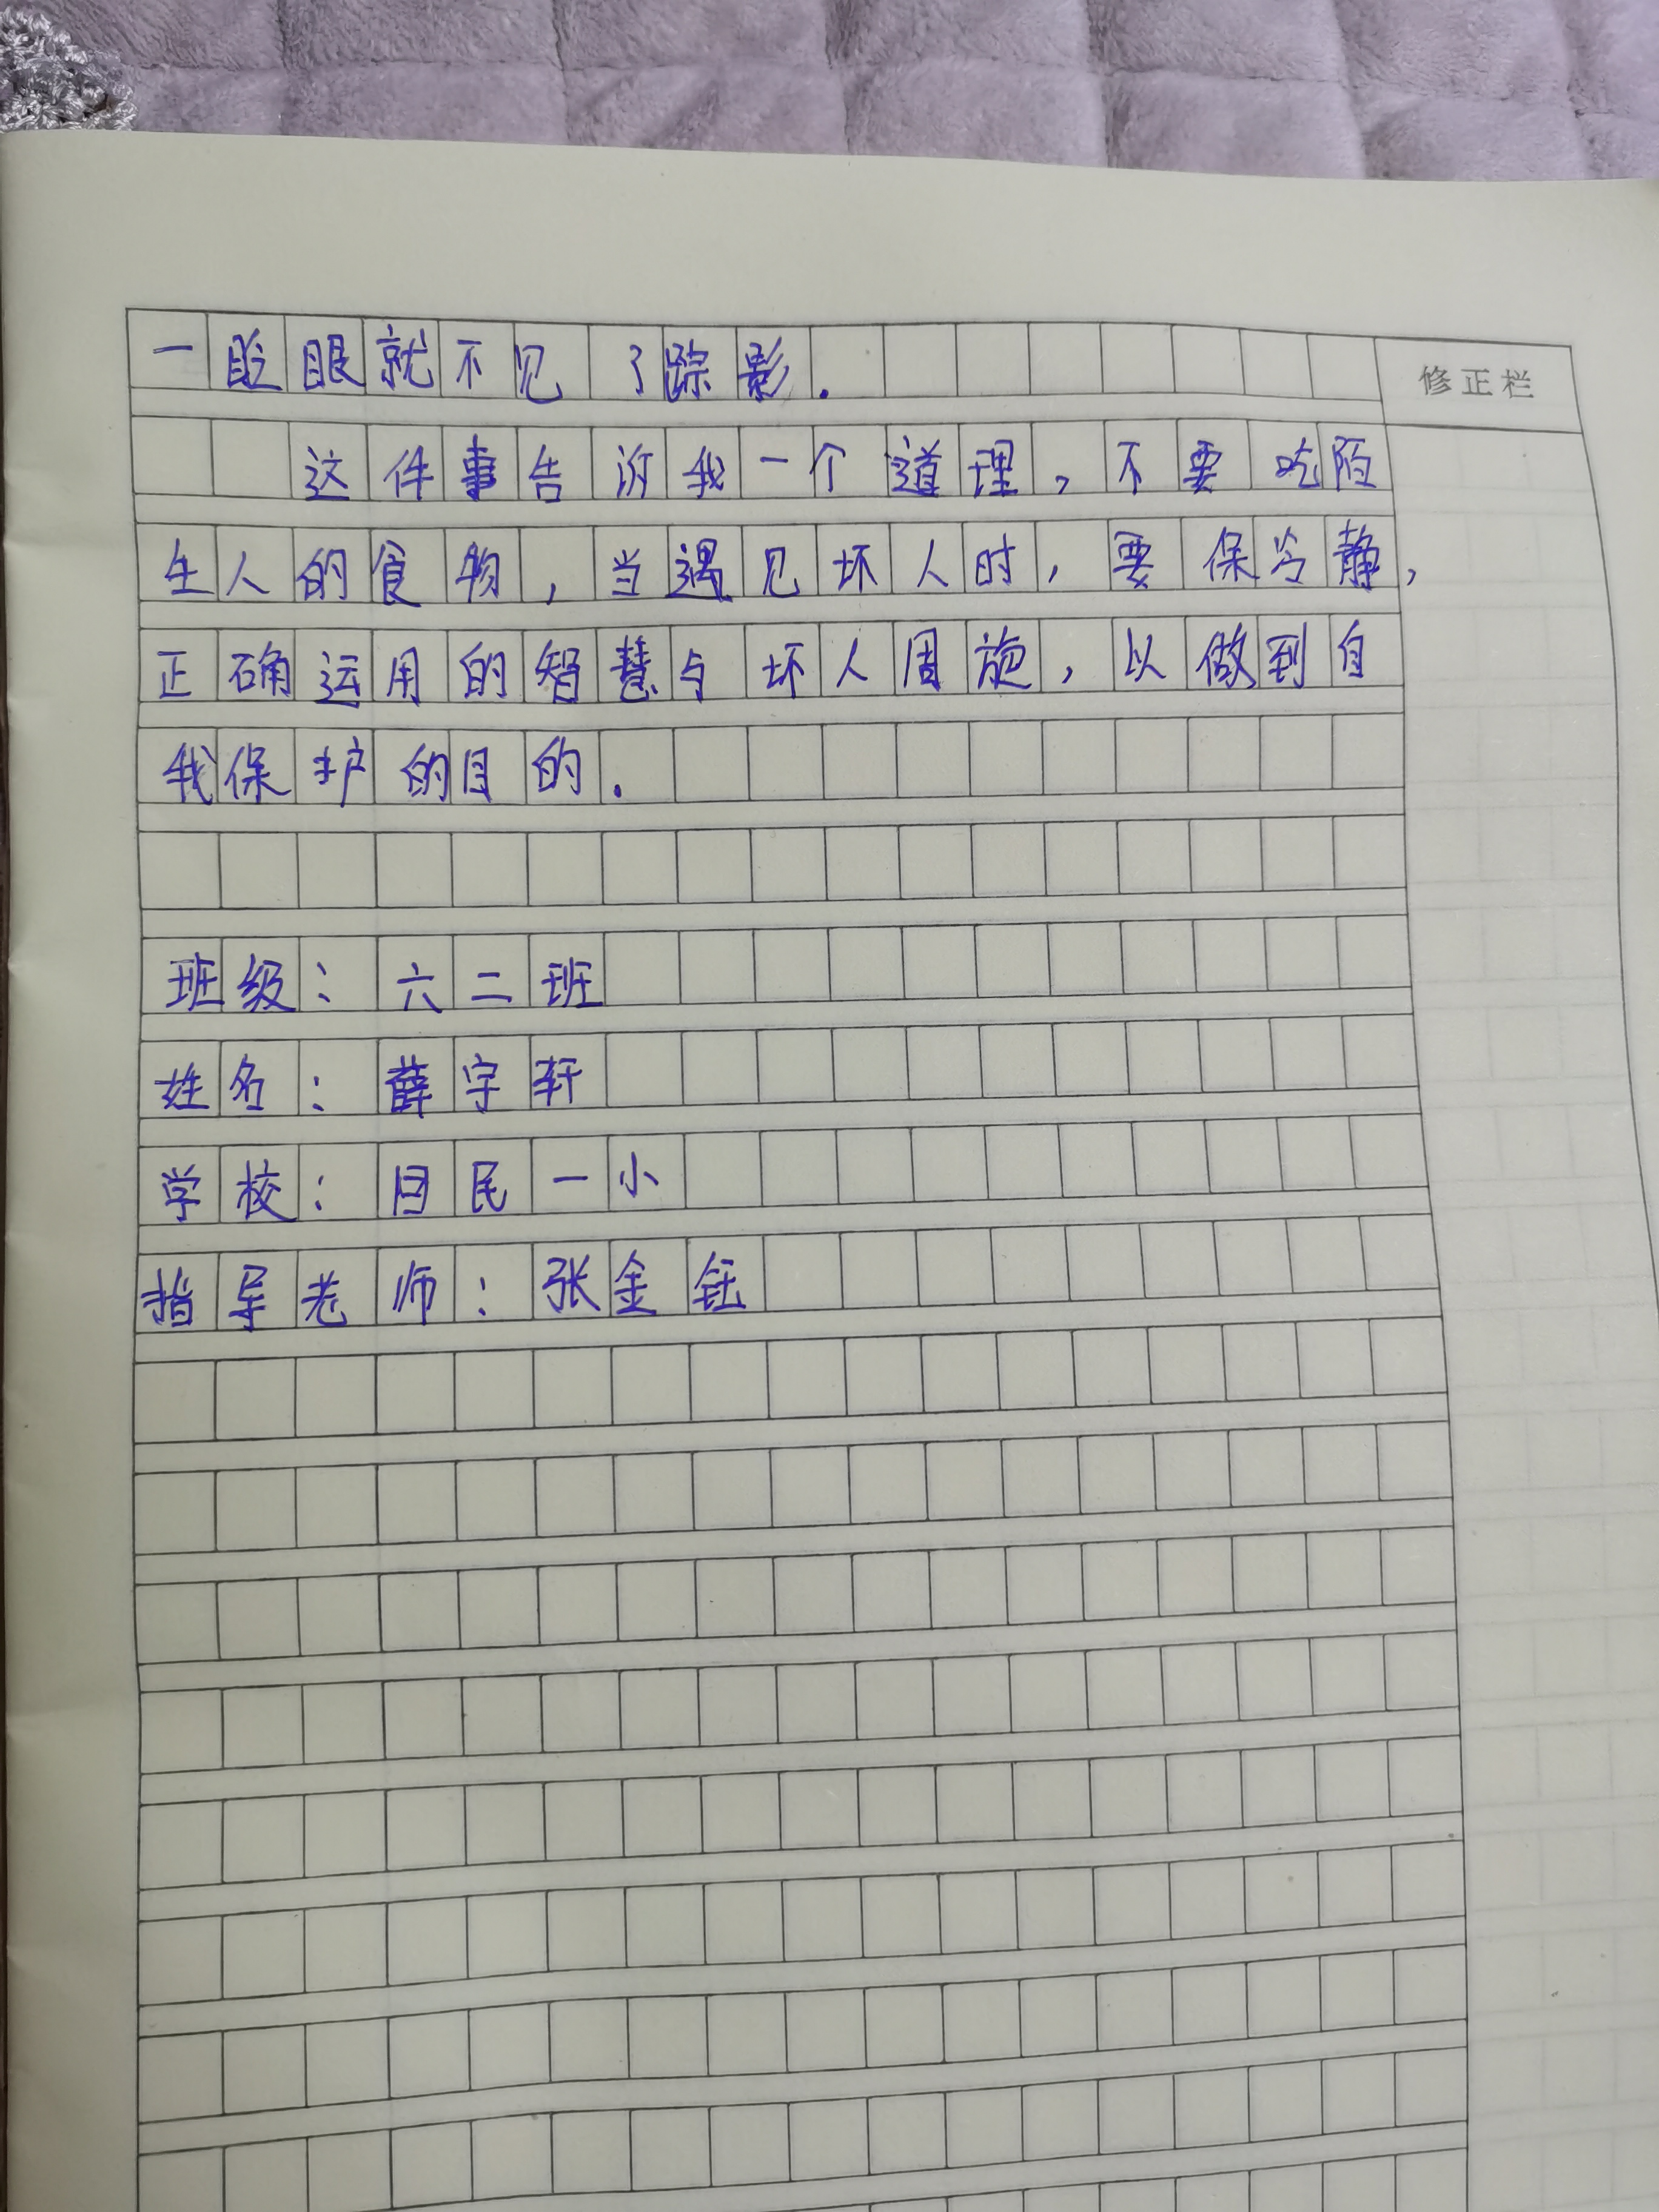 一眨眼就不见了踪影.
修正栏
这件事告诉我一个道理,不要吃陌
生人的食物,当遇见坏人时,要保冷静,
正确运用的智慧与坏人周旋,以做到自
我保护的目的.
班级:六二班
姓名:薛宇轩
学校:回民一小
指导老师:张金钰